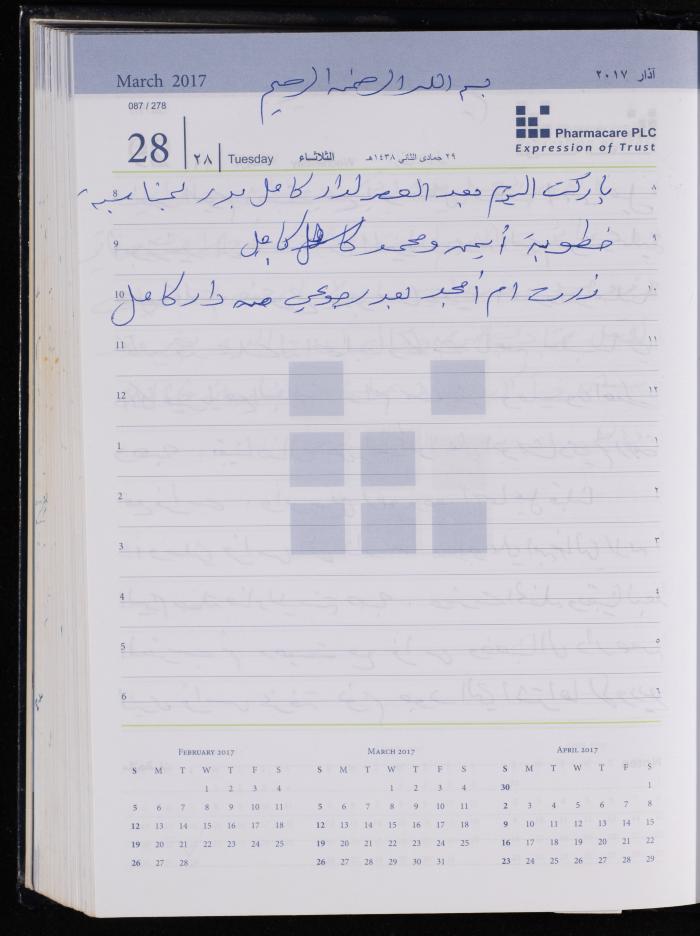 March 2017
بسم الله الرحمن الرحيم
آذار ٢٠١٧
087 / 278
28
٢٨
Tuesday
الثلاثاء
٢٩ جمادى الثاني ١٤٣٨هـ
Pharmacare PLC
Expression of Trust
باركت اليوم بعد العصر لدار كامل بدر لمناسبة
خطوبة أيمن ومحمد كامل
زرت ام أمجد بعد رجوعي من دار كامل
8 ٨
9 ٩
10 ١٠
11 ١١
12 ١٢
1 ١
2 ٢
3 ٣
4 ٤
5 ٥
6 ٦
February 2017
S M T W T F S
1 2 3 4
5 6 7 8 9 10 11
12 13 14 15 16 17 18
19 20 21 22 23 24 25
26 27 28
March 2017
S M T W T F S
1 2 3 4
5 6 7 8 9 10 11
12 13 14 15 16 17 18
19 20 21 22 23 24 25
26 27 28 29 30 31
April 2017
S M T W T F S
30 1
2 3 4 5 6 7 8
9 10 11 12 13 14 15
16 17 18 19 20 21 22
23 24 25 26 27 28 29